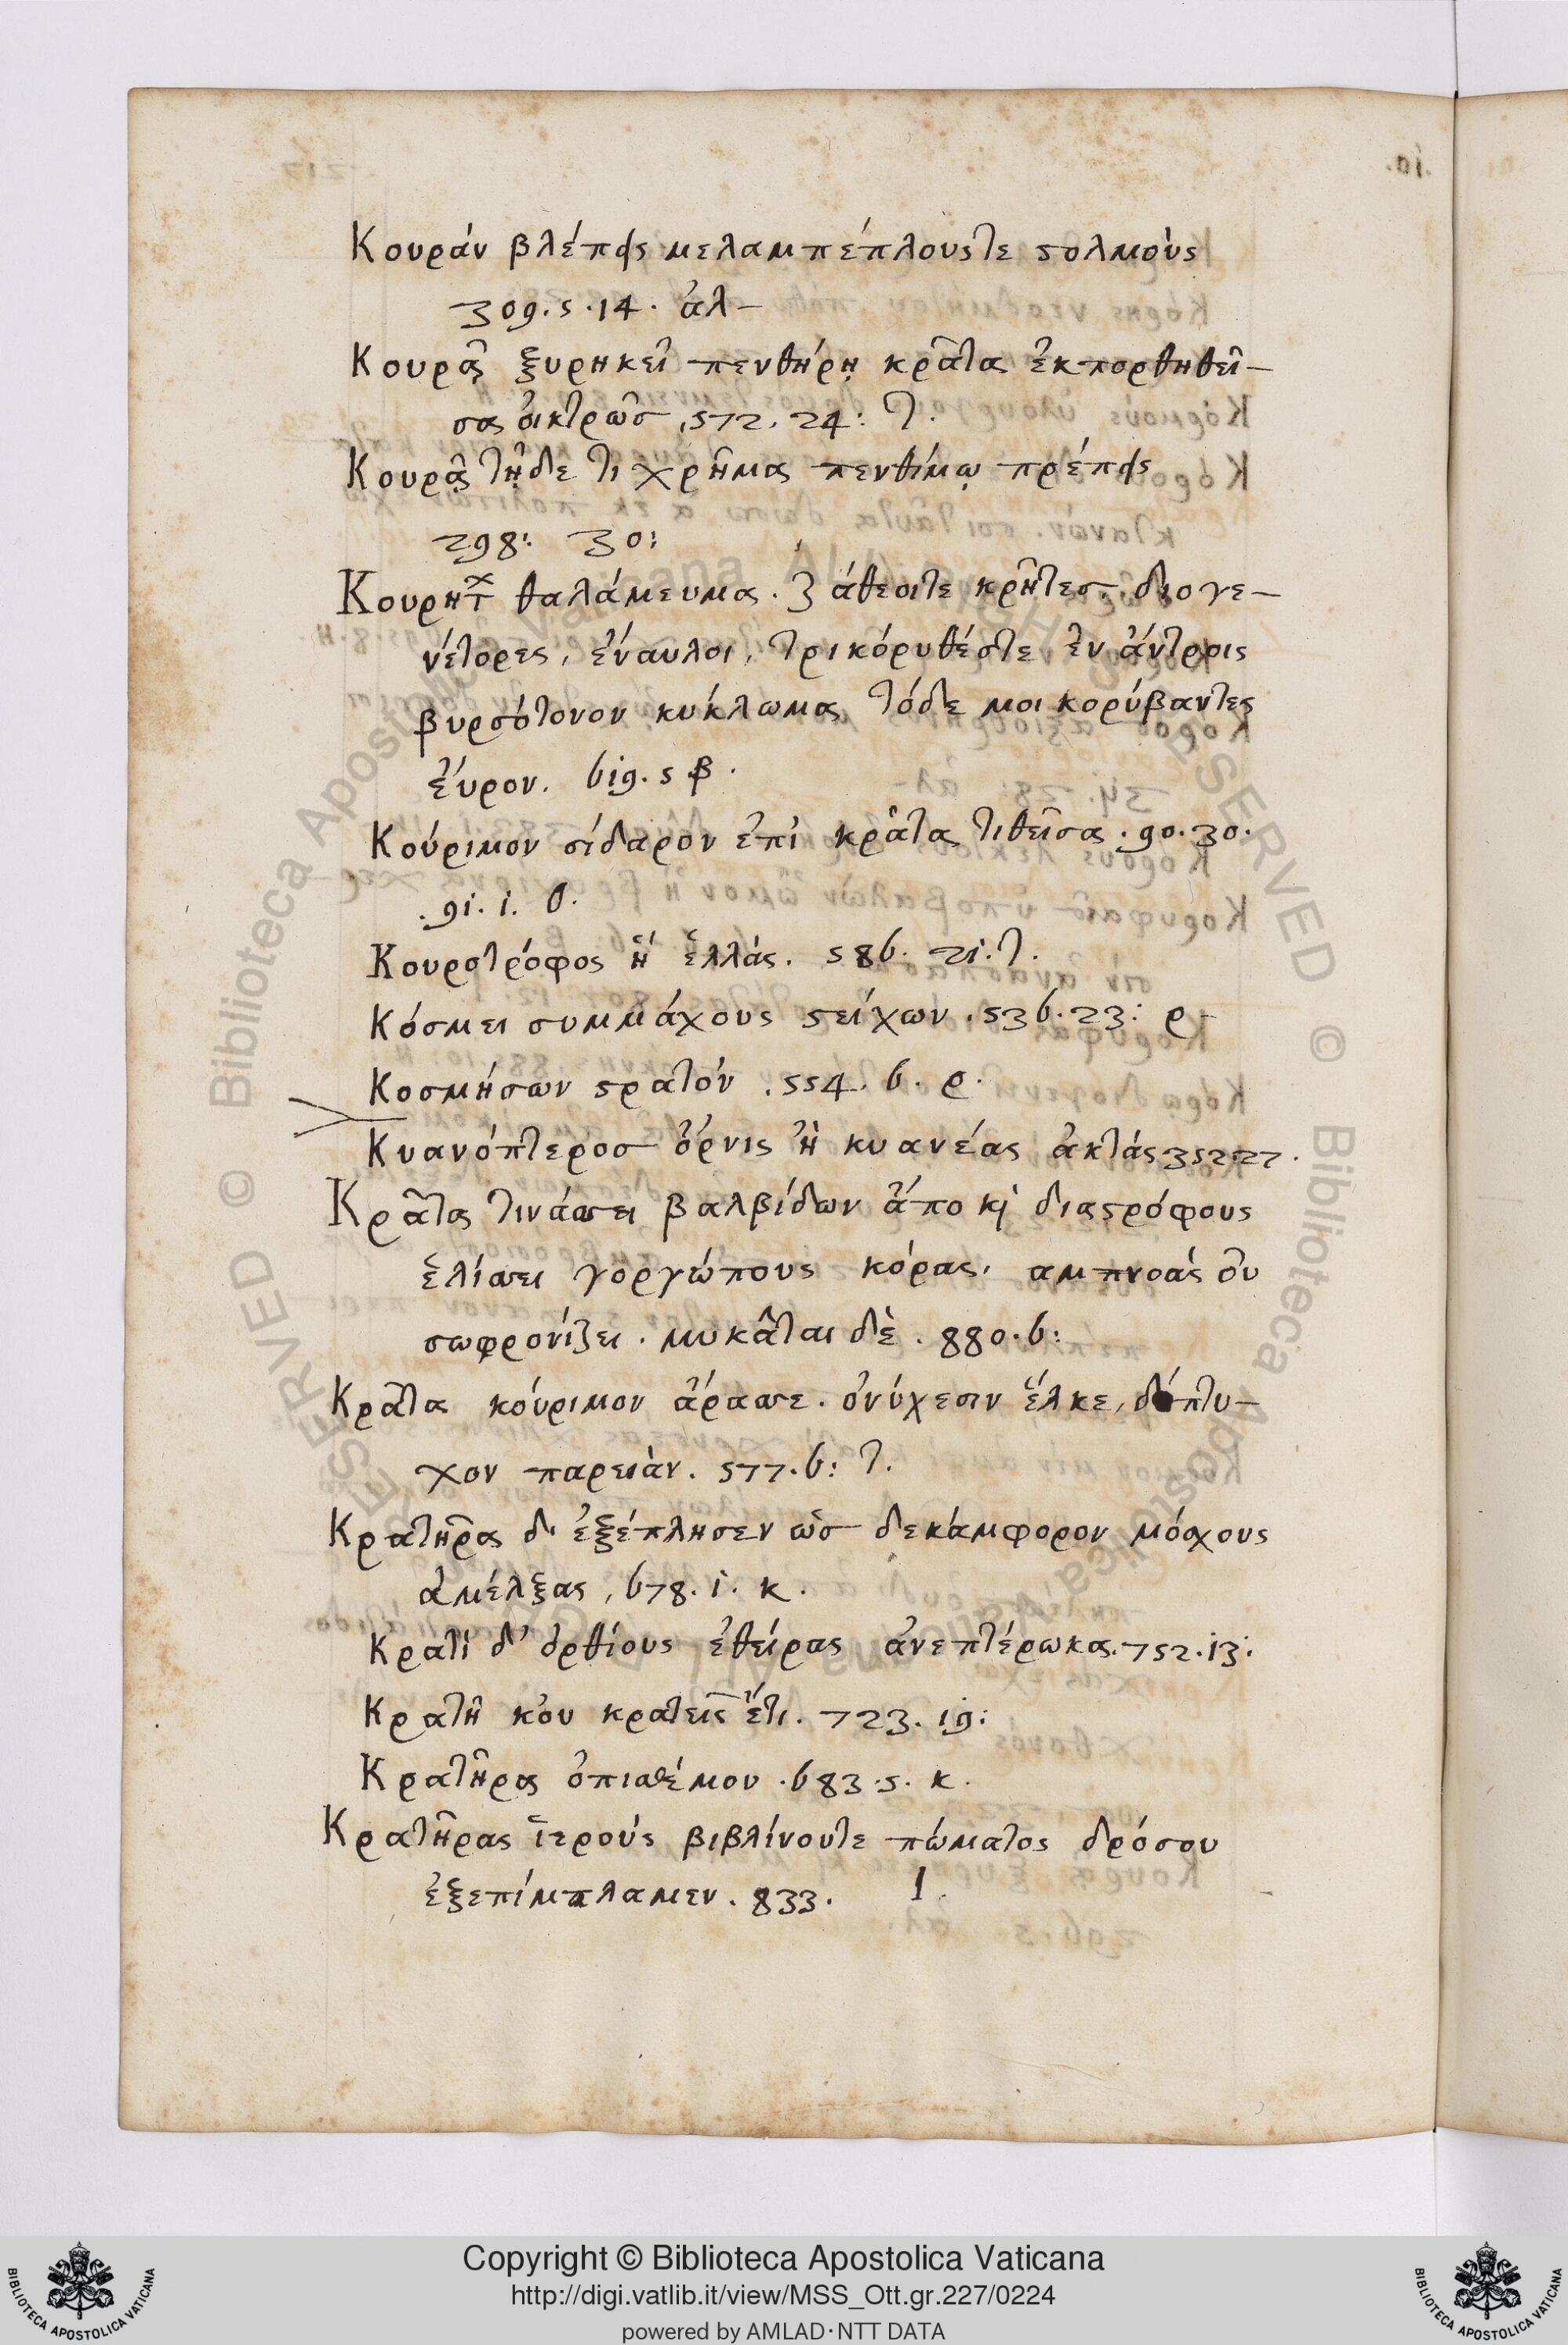 Κουρὰν βλέπεις μελαμπέπλουςτε στολμοὺς
309.5.14. ἀλ-
Κουρᾷ ξυρηκεῖ πενθήρη κρᾶτα ἐκπορθηθεῖ-
σα οἰκτρῶσ, 572. 24: τ.
Κουρᾷ τῇδε τι χρῆμα πενθίμῳ πρέπεις
298: 30:
θαλάμευμα. ζάθεοιτε κρῆτεσ. διογε-
νέτορες, ἐναυλοι, τρικόρυθέστε ἐν ἄντροις
βυρσότονον κύκλωμα τόδε μοι κορύβαντες
εὗρον. 619. 5 β.
Κούριμον σίδαρον ἐπὶ κρᾶτα τιθεῖσα. 90. 30.
.91. 1. θ.
Κουροτρόφος ἡ ἑλλάς. 586. 21. τ.
Κόσμει συμμάχους στείχων. 536. 23: ρ-
Κοσμήσων στρατόν. 554. 6. ρ.
Κυανόπτεροσ ὄρνις ἢ κυανέας ἀκτάς 352 27.
Κρᾶτα τινάσσει βαλβίδων ἄπο κὶ διαστρόφους
ἑλίσσει γοργώπους κόρας, αμπνοὰς οὐ
σωφρονίζει. μυκᾶται δὲ. 880. 6:
Κρᾶτα κούριμον ἄρασσε. ὀνύχεσιν ἕλκε, δίπτυ-
χον παρειὰν. 577. 6: τ.
Κρατῆρα δ' ἐξέπλησεν ὡσ δεκάμφορον μόσχους
ἀμέλξας, 678. 1. κ.
Κρατὶ δ' ὀρθίους ἐθείρας ἀνεπτέρωκα. 752. 13:
Κρατῆ κοὐ κρατεῖς ἔτι. 723. 19:
Κρατῆρα ὀπισθίμου. 683. 5. κ.
Κρατῆρας ἱερούς βιβλίνουτε πώματος δρόσου
ἐξεπίμπλαμεν. 833. Ι.
Copyright © Biblioteca Apostolica Vaticana
http://digi.vatlib.it/view/MSS_Ott.gr.227/0224
powered by AMLAD·NTT DATA